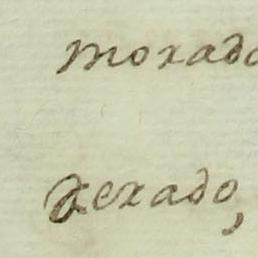 moxado
Dexado,